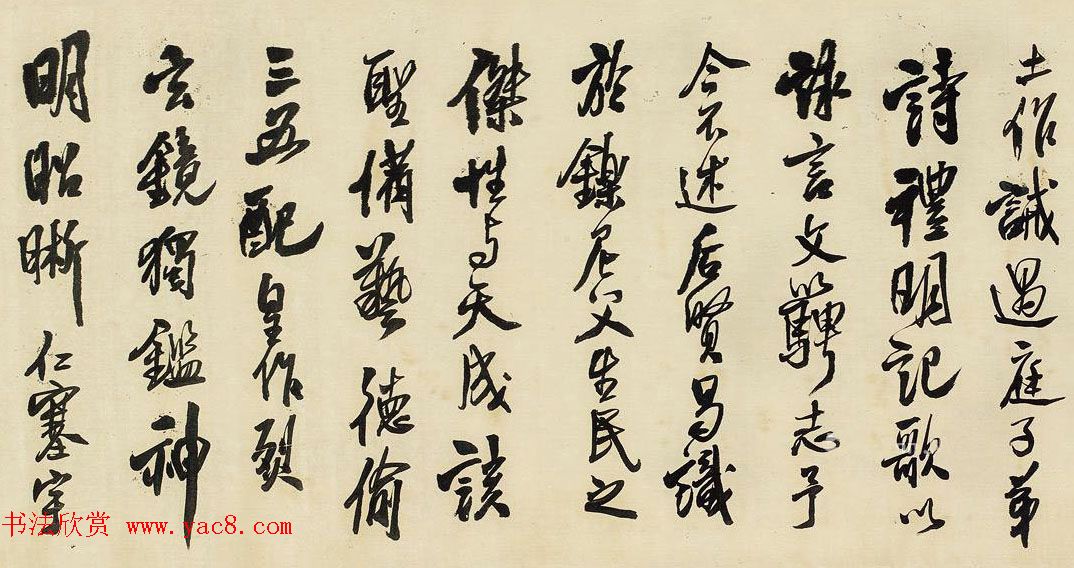 士作誡過庭子弟
詩禮明記歌以
詠言文以騁志予
今不述后賢曷識
於鑠尼父生民之
傑性与天成該
聖備藝德偷
三五配皇作烈
玄鏡獨鑑神
明昭晰仁塞宇
书法欣赏 www.yac8.com